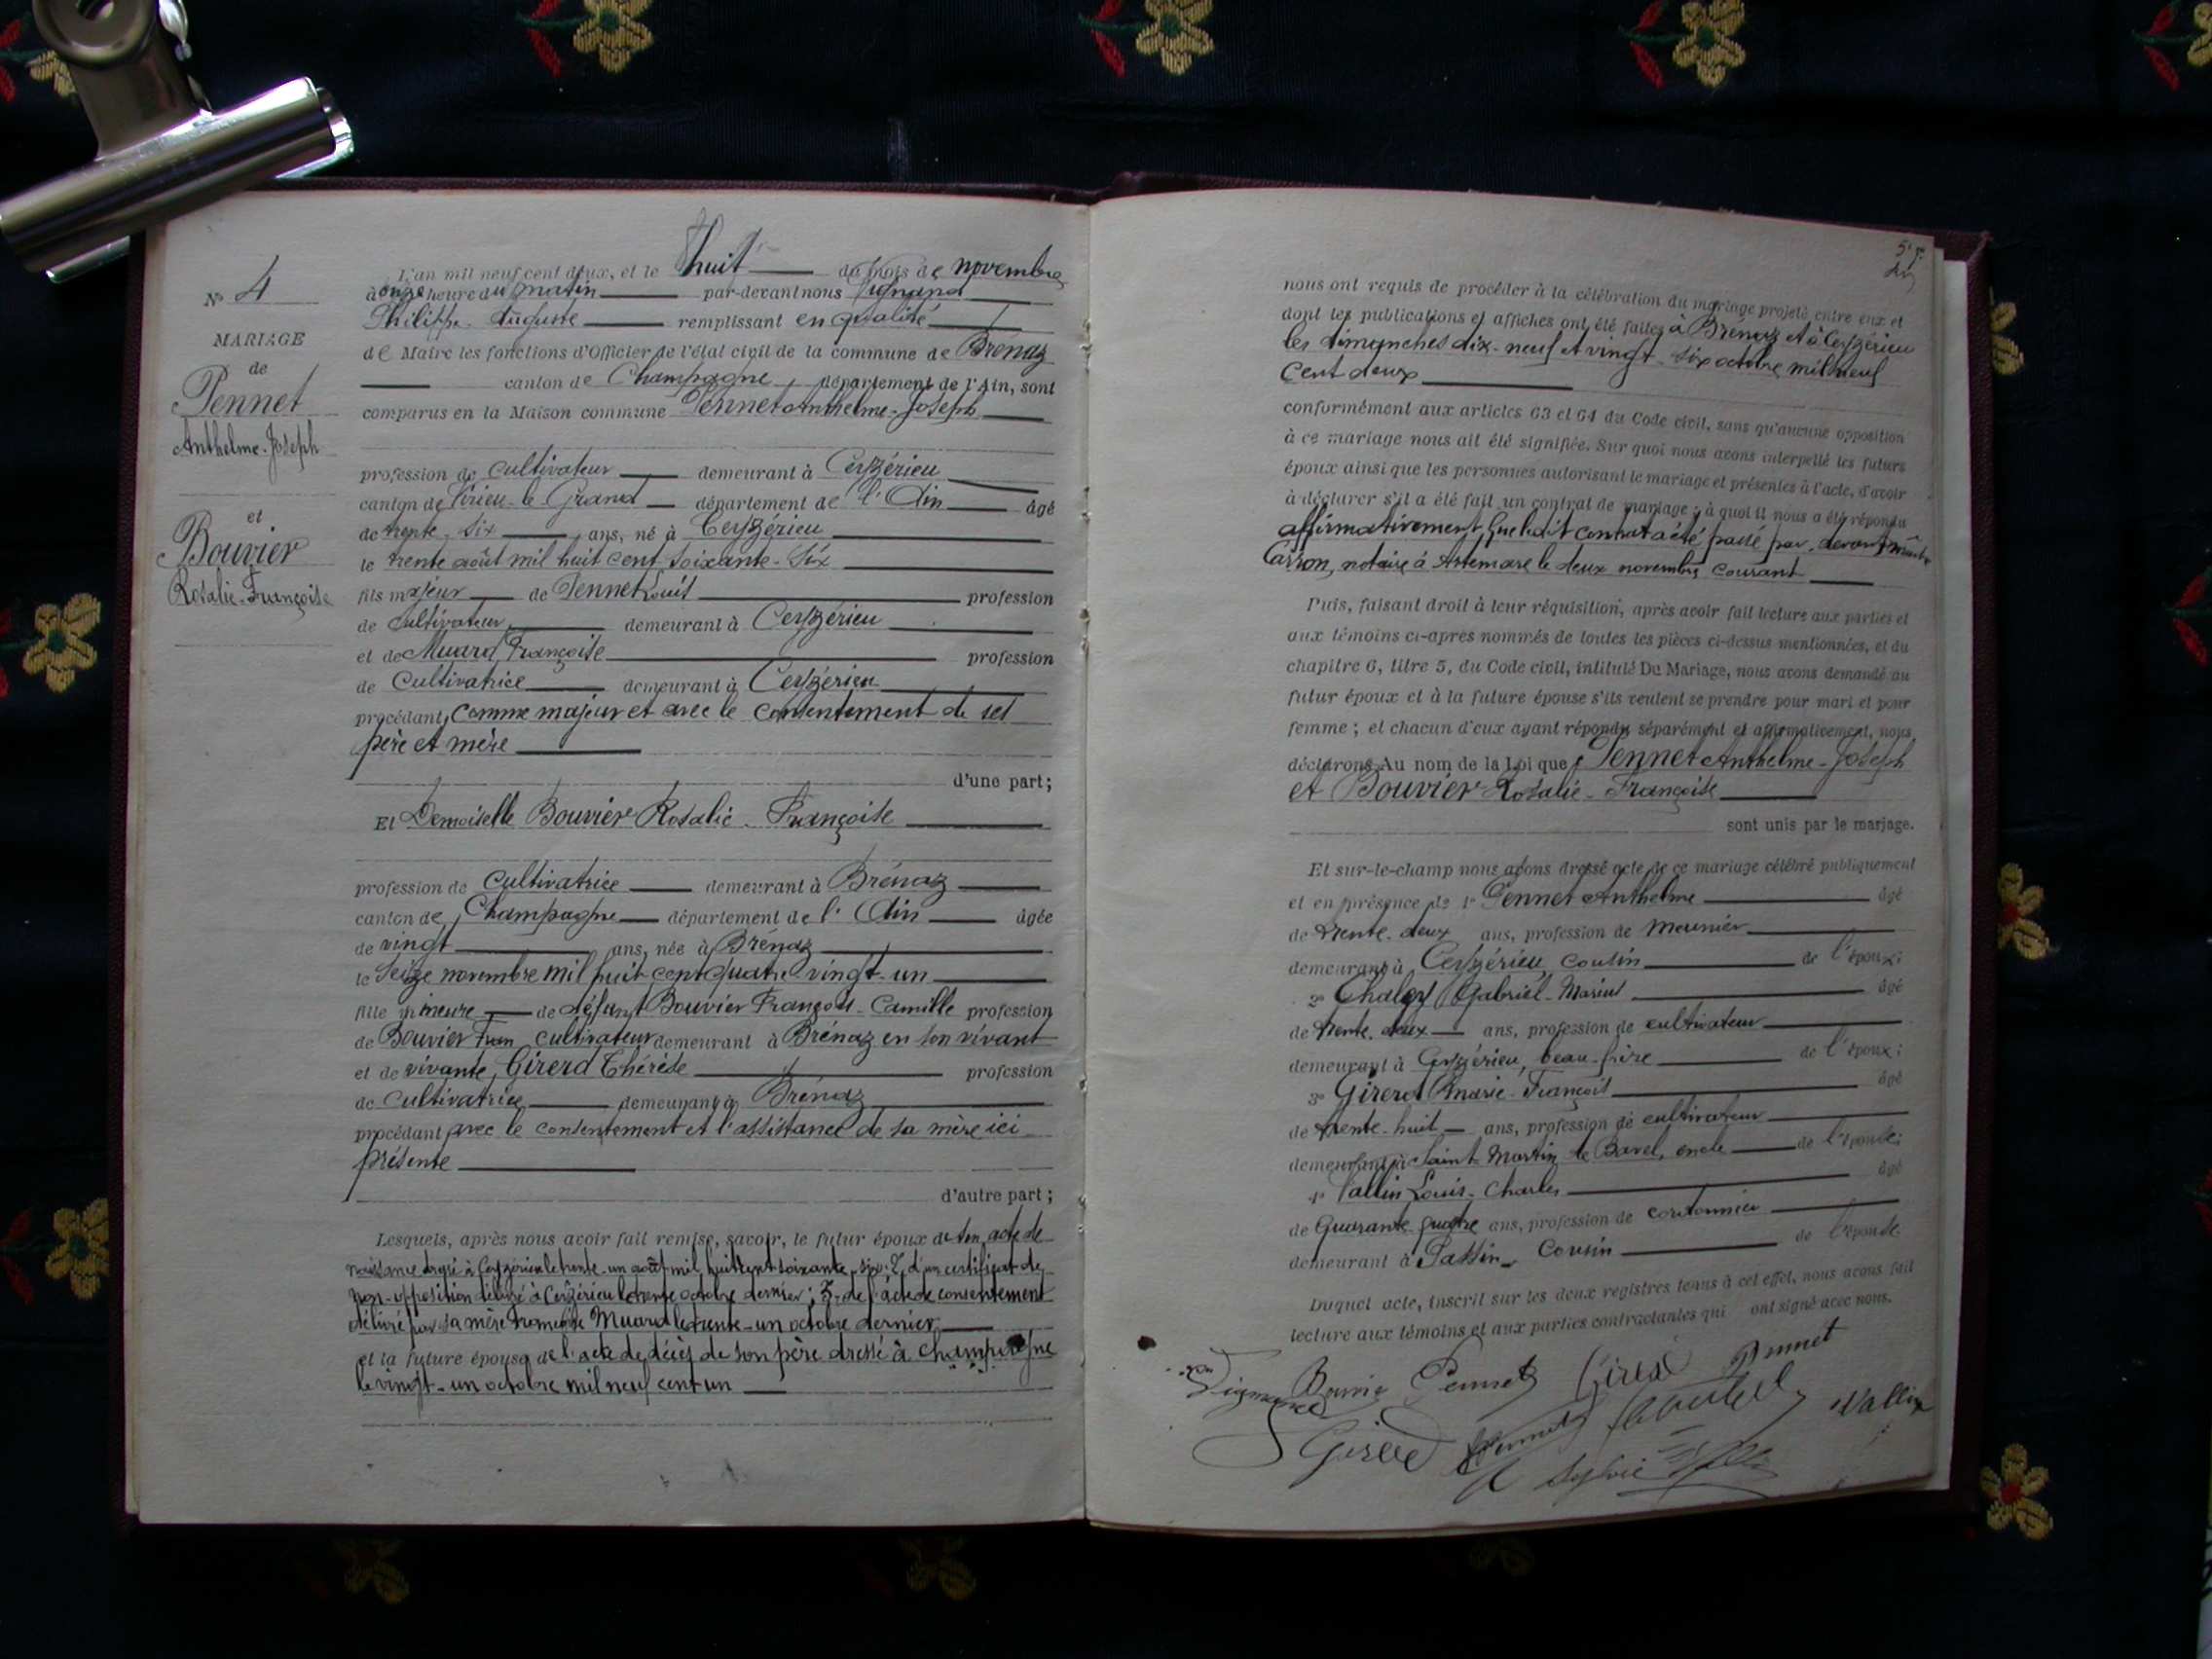 N° 4
MARIAGE
de
Pennet
Anthelme-Joseph
et
Bouvier
Rosalie-Françoise
L'an mil neuf cent deux, et le huit du mois de novembre
à onze heure du matin par-devant nous
Philippe Auguste remplissant en qualité
de Maire les fonctions d'Officier de l'état civil de la commune de Brénaz
canton de Champagne département de l'Ain, sont
comparus en la Maison commune Pennet Anthelme-Joseph
profession de cultivateur demeurant à Ceyzérieu
canton de Virieu-le-Grand département de l'Ain âgé
de trente-six ans, né à Ceyzérieu
le trente août mil huit cent soixante-six
fils majeur de Pennet Louis profession
de cultivateur demeurant à Ceyzérieu
et de Muard Françoise profession
de Cultivatrice demeurant à Ceyzérieu
procédant comme majeur et avec le consentement de ses
père et mère
d'une part;
Et Demoiselle Bouvier Rosalie-Françoise
profession de Cultivatrice demeurant à Brénaz
canton de Champagne département de l'Ain âgée
de vingt ans, née à Brénaz
le Seize novembre mil huit cent quatre vingt-un
fille mineure de défunt Bouvier François-Camille profession
de Bouvier Fran cultivateur demeurant à Brénaz en son vivant
et de vivante, Girerd Thérèse profession
de cultivatrice demeurant à Brénaz
procédant avec le consentement et l'assistance de sa mère ici
présente
d'autre part;
Lesquels, après nous avoir fait remise, savoir, le futur époux de son acte de
naissance dressé à Ceyzérieu le trente-un août mil huit cent soixante-six; 2° d'un certificat de
non-opposition délivré à Ceyzérieu le trente octobre dernier; 3° de l'acte de consentement
délivré par sa mère Muard le trente-un octobre dernier
et la future épouse de l'acte de décès de son père dressé à Champagne
le vingt-un octobre mil neuf cent un
nous ont requis de procéder à la célébration du mariage projeté entre eux et
dont les publications et affiches ont été faites à Brénaz et à Ceyzérieu
les dimanches dix-neuf et vingt-six octobre mil neuf
cent deux
conformément aux articles 63 et 64 du Code civil, sans qu'aucune opposition
à ce mariage nous ait été signifiée. Sur quoi nous avons interpellé les futurs
époux ainsi que les personnes autorisant le mariage et présentes à l'acte, d'avoir
à déclarer s'il a été fait un contrat de mariage; à quoi il nous a été répondu
affirmativement, que ledit contrat a été passé par devant maître
Carron, notaire à Artemare le deux novembre courant
Puis, faisant droit à leur réquisition, après avoir fait lecture aux parties et
aux témoins ci-après nommés de toutes les pièces ci-dessus mentionnées, et du
chapitre 6, titre 5, du Code civil, intitulé Du Mariage, nous avons demandé au
futur époux et à la future épouse s'ils veulent se prendre pour mari et pour
femme; et chacun d'eux ayant répondu séparément et affirmativement, nous
déclarons Au nom de la Loi que Pennet Anthelme-Joseph
et Bouvier Rosalie-Françoise
sont unis par le mariage.
Et sur-le-champ nous avons dressé acte de ce mariage célébré publiquement
et en présence de 1° Pennet Anthelme âgé
de trente-deux ans, profession de meunier
demeurant à Ceyzérieu, cousin de l'époux;
2° Gabriel-Marius âgé
de trente-deux ans, profession de cultivateur
demeurant à Ceyzérieu, beau-frère de l'époux;
3° Girerd Marie-François âgé
de trente-huit ans, profession de cultivateur
demeurant à Saint Martin de Bavel, oncle de l'épouse;
4° Vallin Louis-Charles âgé
de Quarante-quatre ans, profession de cordonnier
demeurant à Passin cousin de l'épouse
Duquel acte, inscrit sur les deux registres tenus à cet effet, nous avons fait
lecture aux témoins et aux parties contractantes qui ont signé avec nous.
Pennet Pennet
Vallin